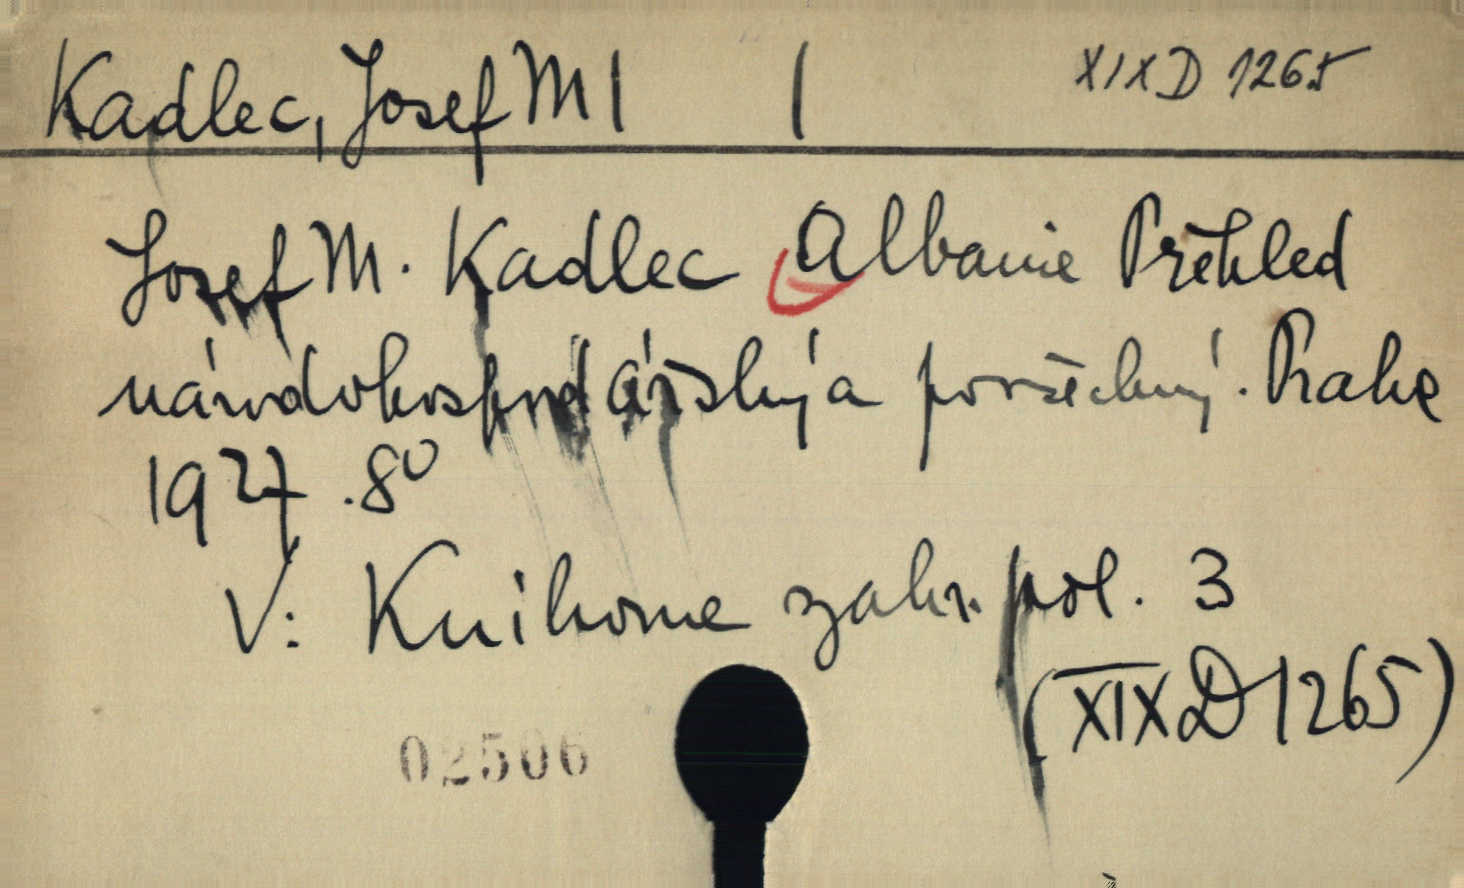 Kadlec, Josef M | | XIX D 1265
Josef M. Kadlec Albanie Přehled
národohospodářský a povšechný. Praha
1927. 8°
V: Knihovně zahr. pol. 3
(XIX D 1265)
02506